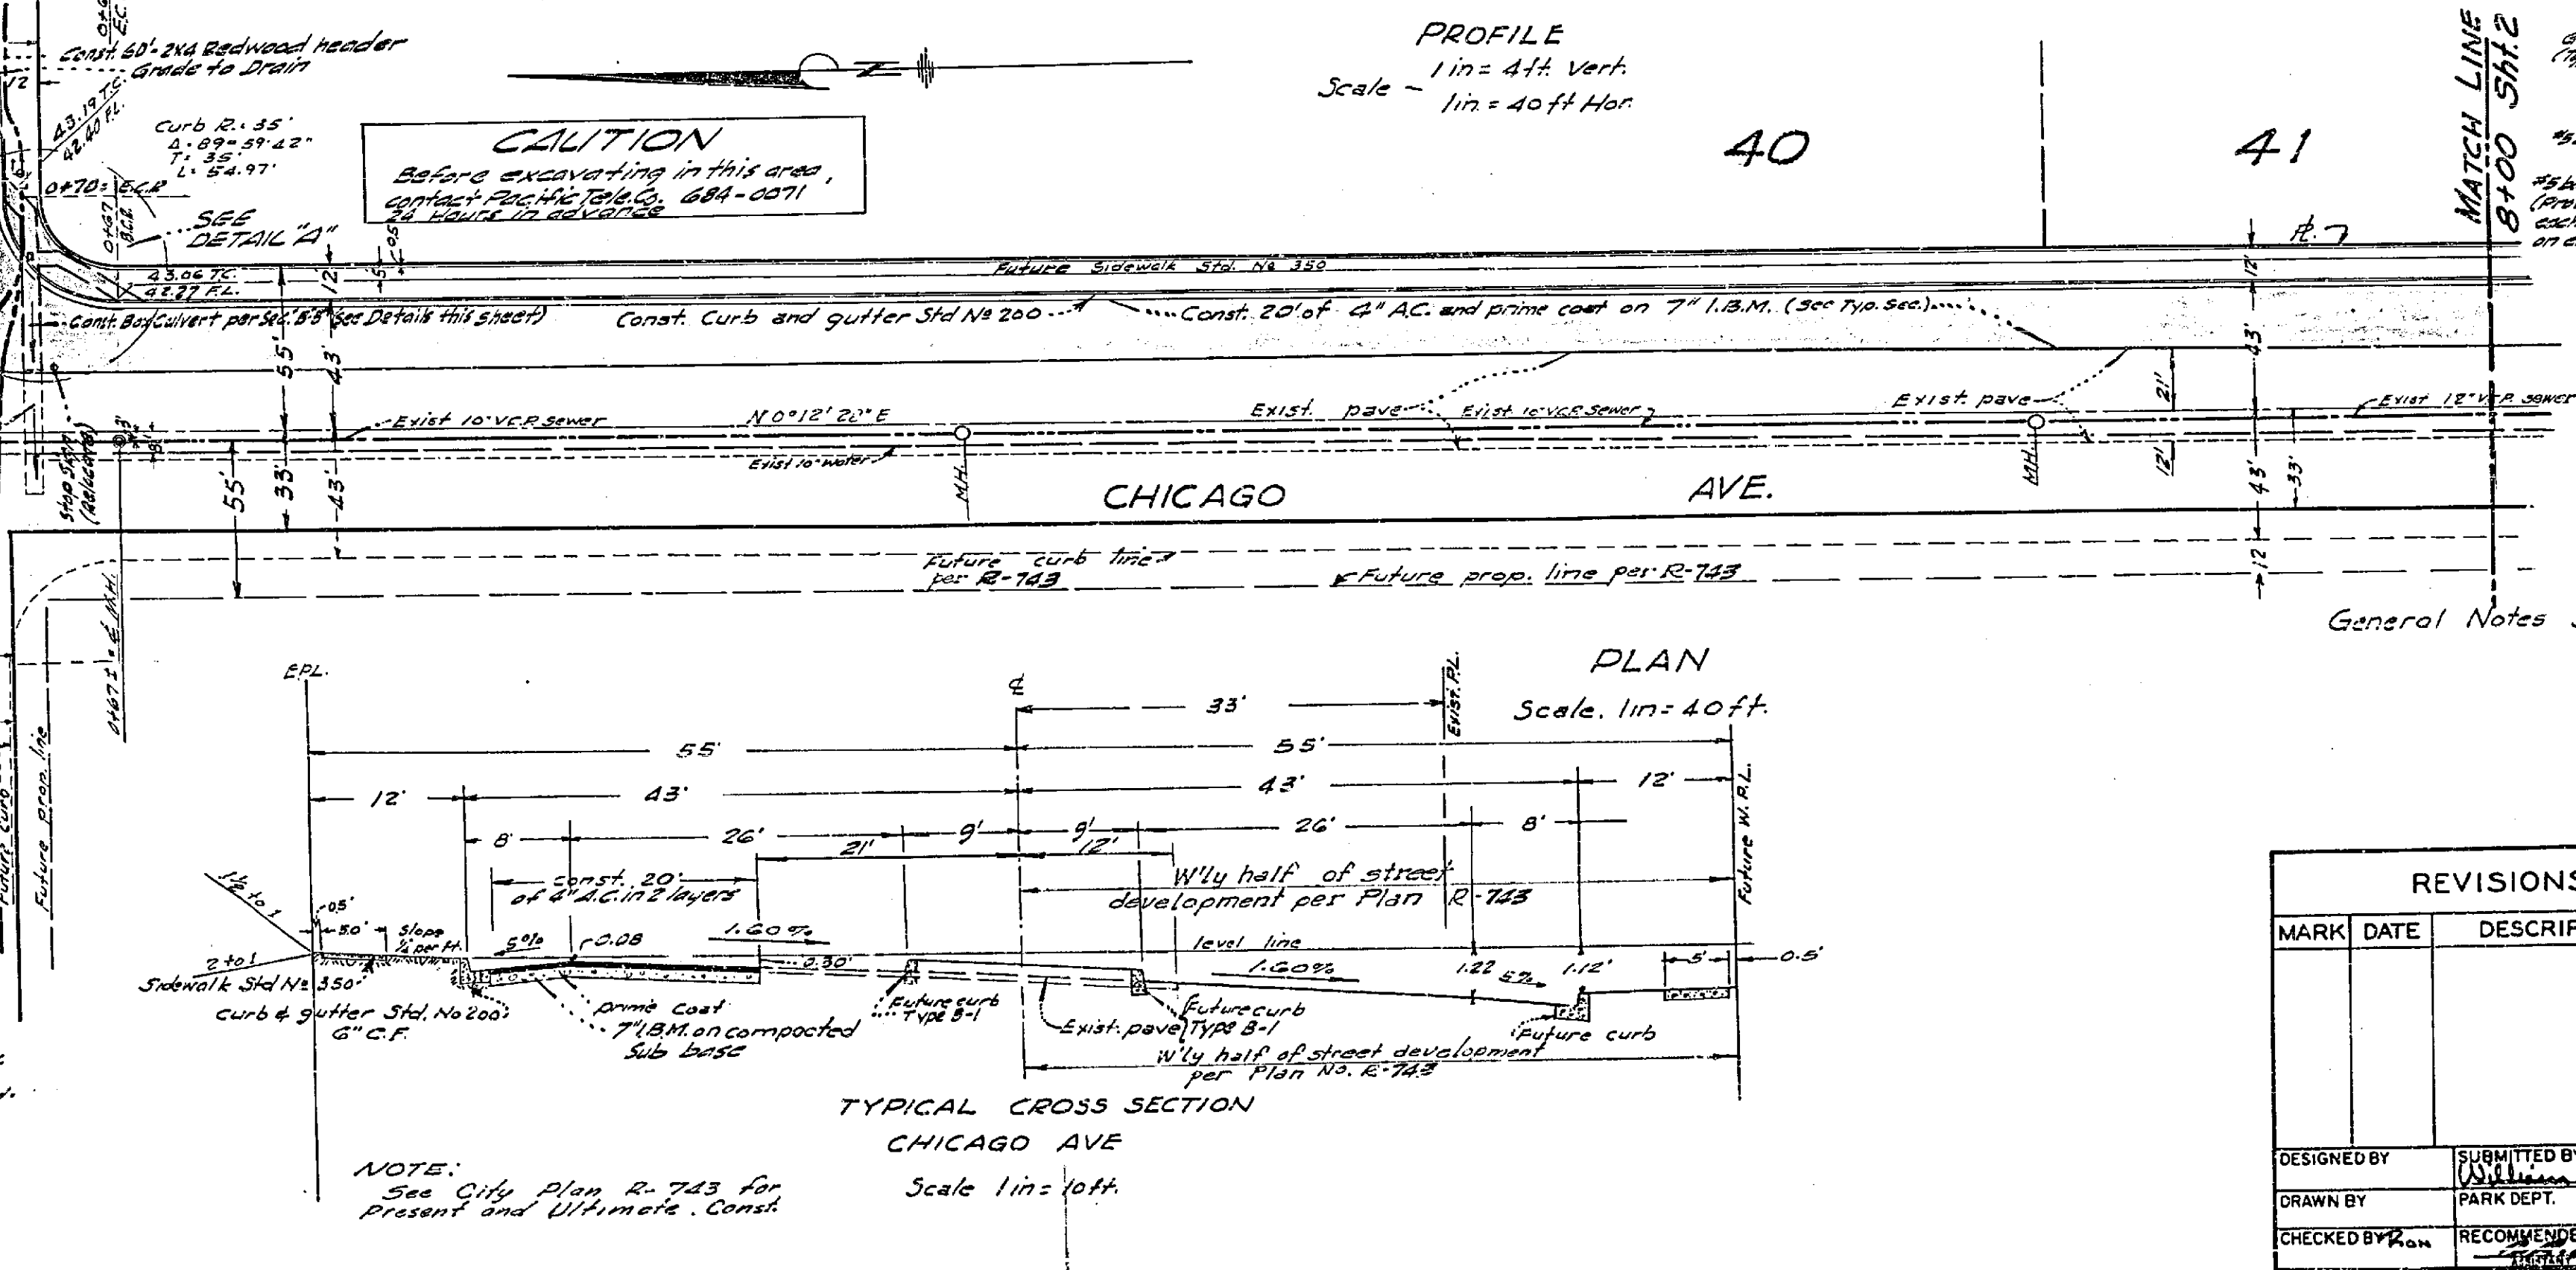 Const. 60'-2x4 Redwood header
Grade to Drain
12
43.19 T.C.
42.40 F.L.
Curb R.: 35'
Δ - 89° 59' 42"
T: 35'
L: 54.97'
0+70 = E.C.R.
0+67
B.C.R.
SEE
DETAIL "A"
CAUTION
Before excavating in this area,
contact Pacific Tele. Co. 684-0071
24 Hours in advance
N
PROFILE
Scale - 1 in = 4 ft. Vert.
1 in. = 40 ft Hor.
40
41
MATCH LINE
8+00 Sht. 2
43.06 T.C.
42.27 F.L.
12'
5'
0.5'
Future Sidewalk Std. No 350
PL.
12'
Const. Box Culvert per Sec. B-B (see Details this sheet)
Const. Curb and gutter Std No 200
Const. 20' of 4" A.C. and prime coat on 7" I.B.M. (See Typ. Sec.)
55'
43'
43'
Exist 10" V.C.P. sewer
N 0° 12' 22" E
Exist. pave
Exist 10" V.C.P. Sewer
Exist. pave
21'
Exist 12" V.C.P. sewer
Stop Sign
(Relocate)
Exist 10" Water
M.H.
M.H.
12'
55'
33'
43'
CHICAGO AVE.
43'
33'
Future curb line
per R-743
Future prop. line per R-743
12
0+67 ± ¢ M.H.
General Notes
Future Curb
Future prop. line
E.P.L.
¢
Exist. P.L.
PLAN
Scale. 1 in = 40 ft.
33'
55'
55'
12'
43'
43'
12'
Future W.P.L.
8'
26'
9'
9'
26'
8'
21'
12'
const. 20'
of 4" A.C. in 2 layers
W'ly half of street
development per Plan R-743
1½ to 1
0.5'
5.0'
Slope
¼ per ft.
5%
0.08
1.60%
level line
2 to 1
0.30'
1.60%
1.22
5%
1.12'
5'
0.5'
Sidewalk Std No 350
Curb & gutter Std. No 200
6" C.F.
prime Coat
7" I.B.M. on compacted
Sub base
Future curb
Type B-1
Exist. pave
Future curb
Type B-1
Future curb
W'ly half of street development
per Plan No. R-743
TYPICAL CROSS SECTION
CHICAGO AVE
Scale 1 in = 10 ft.
NOTE:
See City Plan R-743 for
Present and Ultimate. Const.
REVISIONS
MARK DATE DESCRIP
DESIGNED BY
SUBMITTED BY
William
DRAWN BY
PARK DEPT.
CHECKED BY Ron
RECOMMENDE